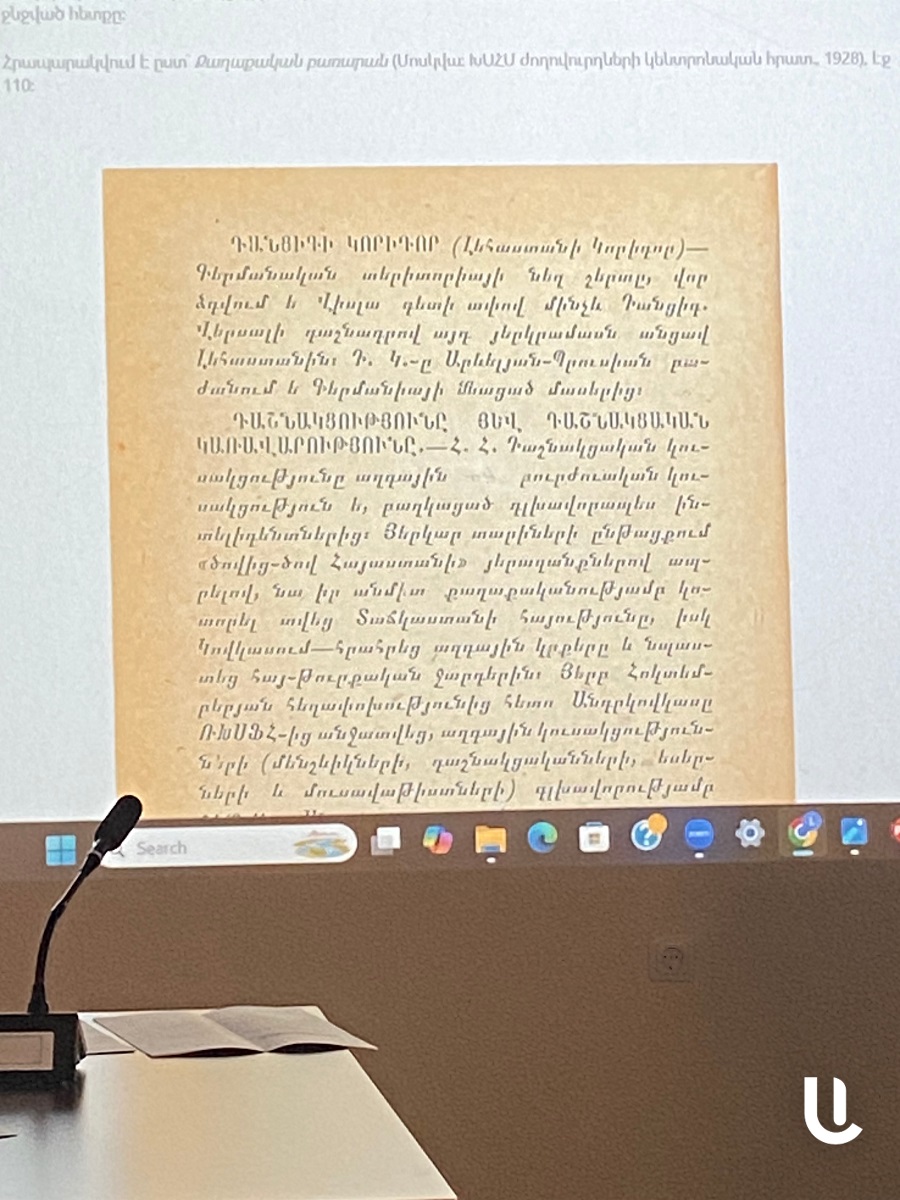 ջնջված հետքը։
Հրապարակվում է ըստ՝ Քաղաքական բառարան (Մոսկվա: ԽՍՀՄ ժողովուրդների կենտրոնական հրատ., 1928), էջ
110:
ԴԱՆՑԻԳԻ ԿՈՐԻԴՈՐ (Լեհաստանի Կորիդոր)—
Գերմանական տերիտորիայի նեղ շերտը, վոր
ձգվում և Վիսլա գետի ափով մինչև Դանցիգ.
Վերսալի դաշնագրով այդ յերկրամասն անցավ
Լեհաստանին: Դ. Կ.-ը Արևելյան-Պրուսիան բա-
ժանում և Գերմանիայի մնացած մասերից:
ԴԱՇՆԱԿՑՈՒԹՅՈՒՆԸ ՅԵՎ ԴԱՇՆԱԿՑԱԿԱՆ
ԿԱՌԱՎԱՐՈՒԹՅՈՒՆԸ.—Հ. Հ. Դաշնակցական կու-
սակցությունը ազգային բուրժուական կու-
սակցություն և, բաղկացած գլխավորապես ին-
տելիգենտներից: Յերկար տարիների ընթացքում
«ծովից-ծով Հայաստանի» յերազանքներով ապ-
րելով, նա իր անմիտ քաղաքականությամբ կո-
տորել տվեց Տաճկաստանի հայությունը, իսկ
Կովկասում—հրահրեց ազգային կրքերը և նպաս-
տեց հայ-թուրքական ջարդերին: Յերբ Հոկտեմ-
բերյան հեղափոխությունից հետո Անդրկովկասը
ՌԽՍՖՀ-ից անջատվեց, ազգային կուսակցություն-
ների (մենշևիկների, դաշնակցականների, եսեր-
ների և մուսավաթիստների) գլխավորությամբ
Search